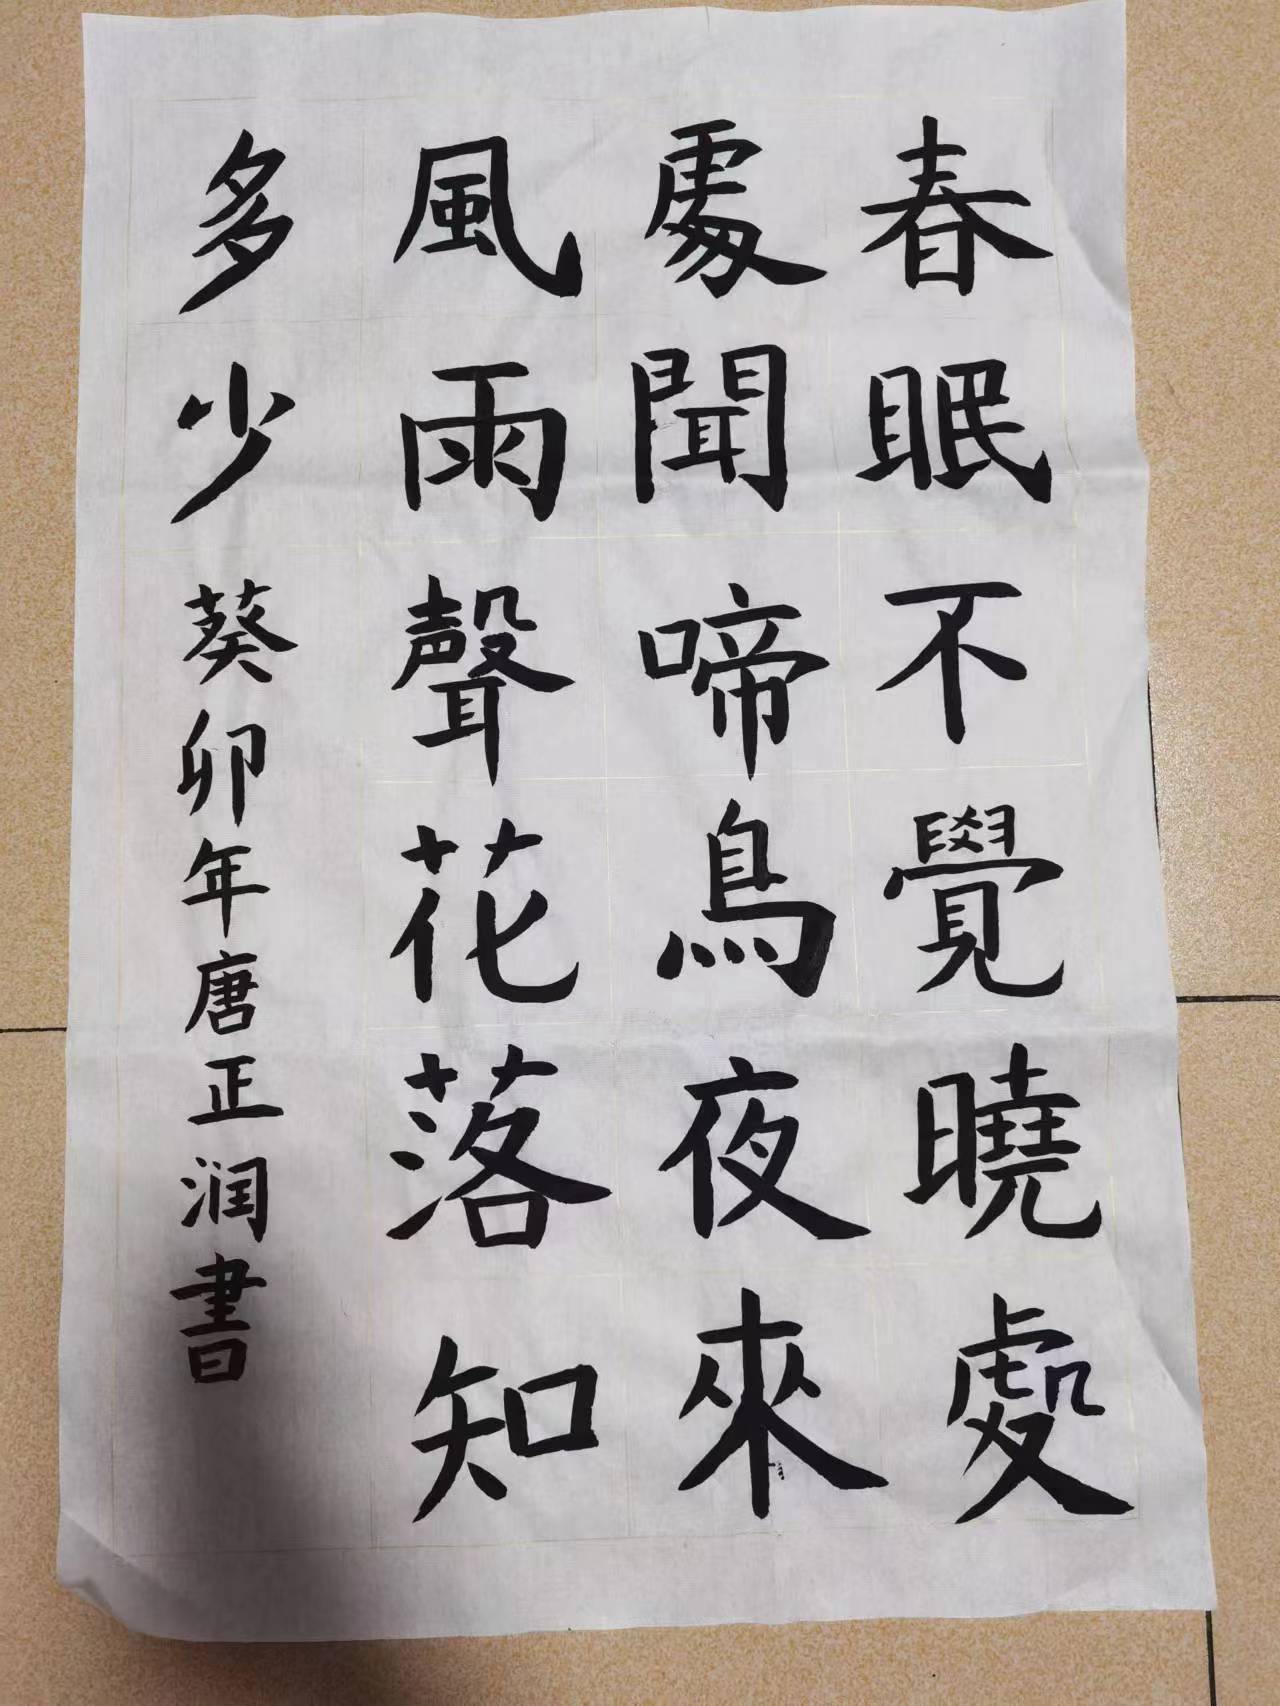 春眠不覺曉處
處聞啼鳥夜來
風雨聲花落知
多少 葵卯年唐正润書